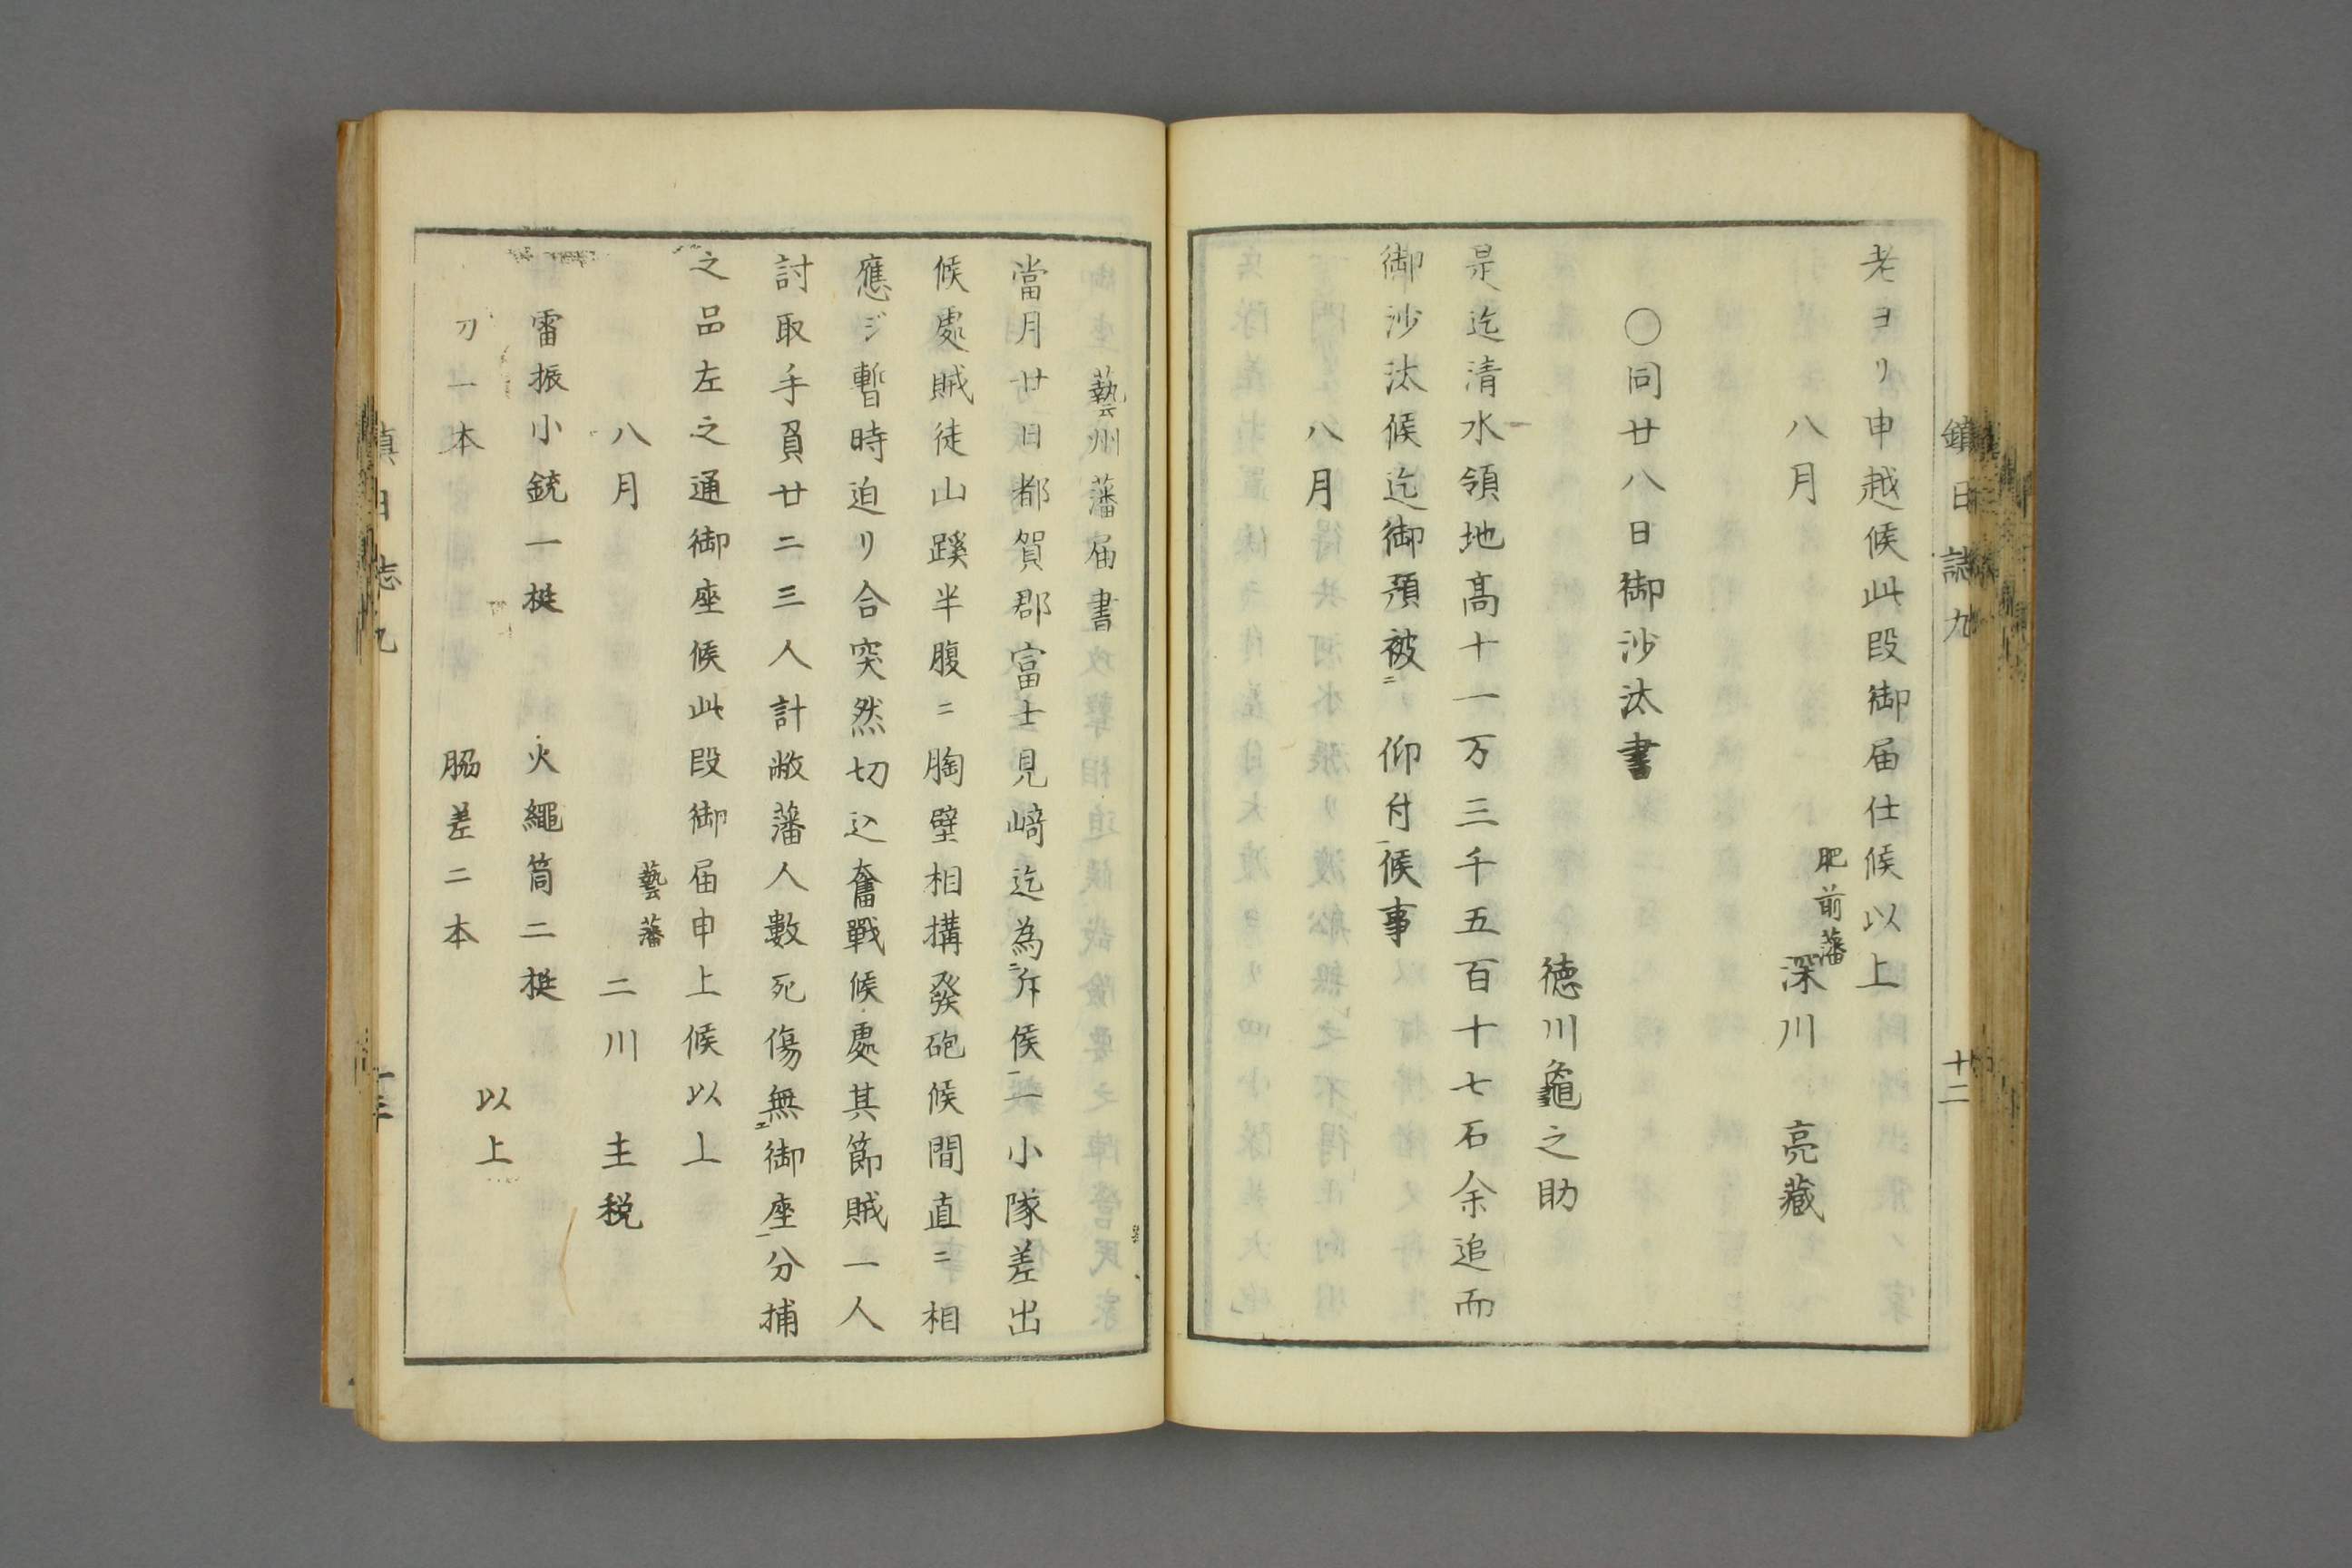 鎮日誌九
十二
老ヨリ申越候此段御届仕候以上
肥前藩
八月 深川 亮藏
○同廿八日御沙汰書
徳川龜之助
是迄清水領地髙十一万三千五百十七石余追而
御沙汰候迄御預被ニ 仰付一候事
八月
藝州藩届書
當月廿日都賀郡富士見﨑迄為ニ斥候一一小隊差出
候處賊徒山蹊半腹ニ胸壁相搆發砲候間直ニ相
應ジ暫時迫リ合突然切込奮戰候處其節賊一人
討取手負廿二三人計敝藩人數死傷無ニ御座一分捕
之品左之通御座候此段御届申上候以上
藝藩
八月 二川 主税
雷振小銃一梃 火繩筒二梃
刀一本 脇差二本
以上